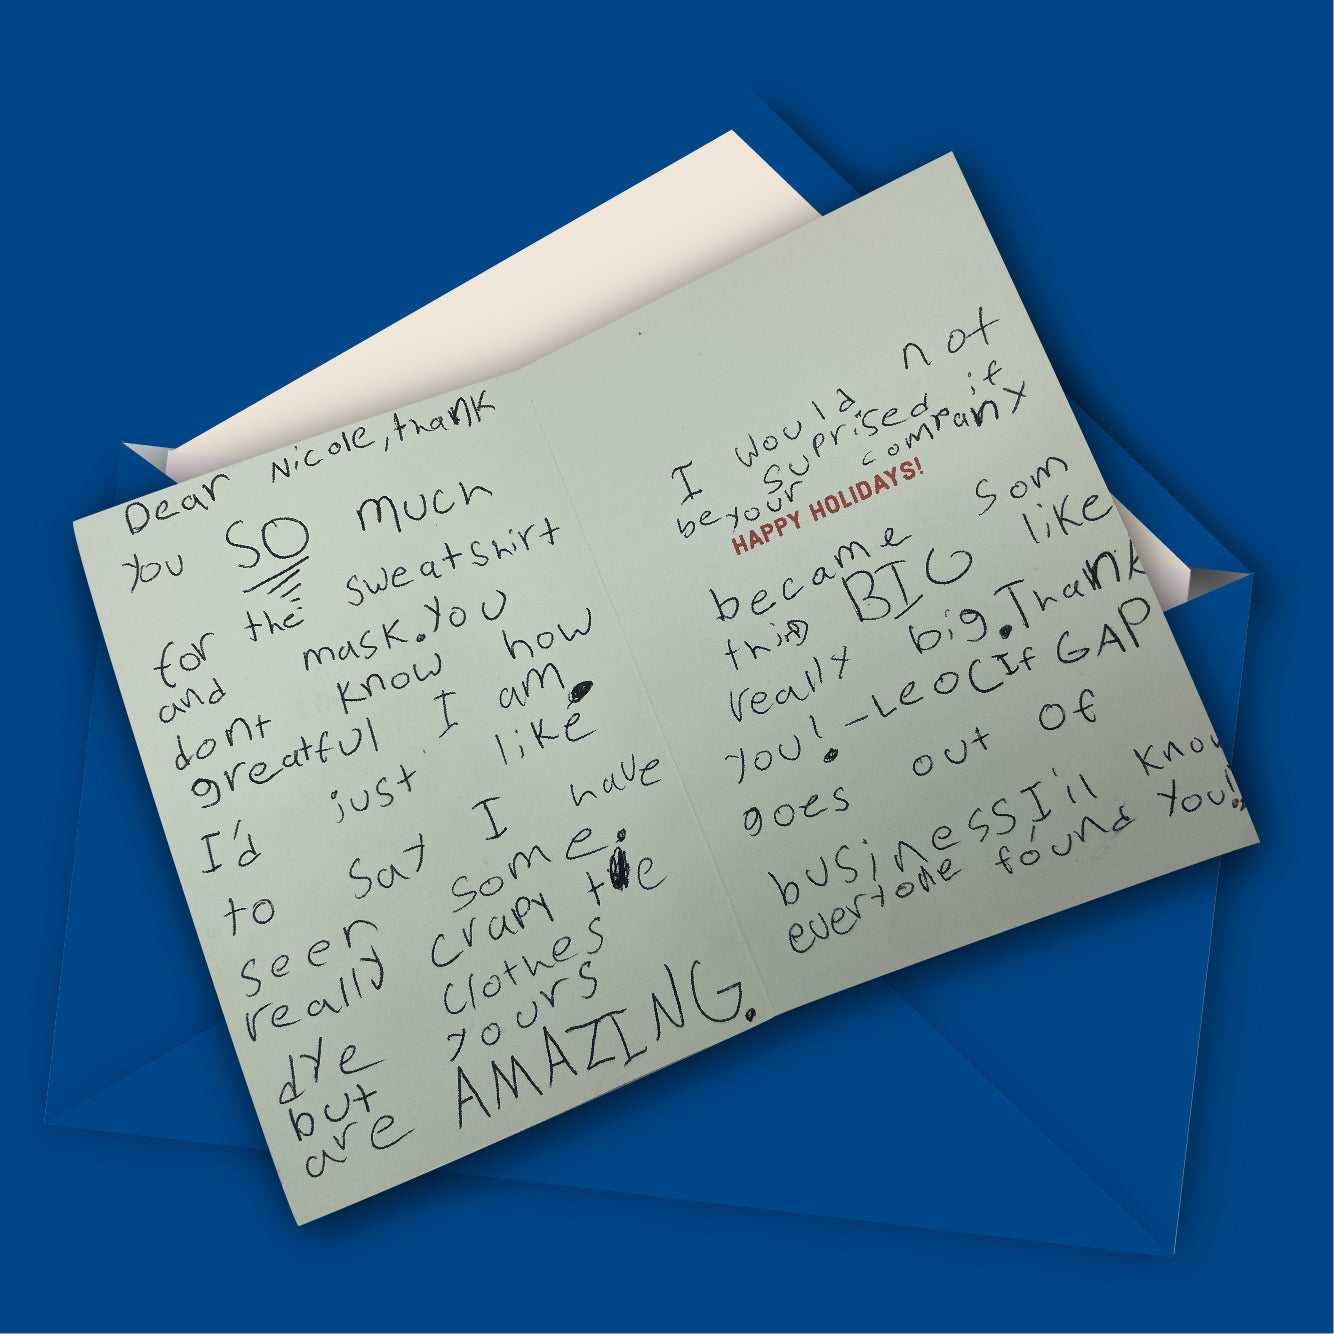 Dear Nicole, thank
you SO much
for the sweatshirt
and mask. You
dont know how
greatful I am.
I'd just like
to say I have
seen some
really crapy tie
dye clothes
but yours
are AMAZING.
I would not
be suprised if
your company
HAPPY HOLIDAYS!
became som
thing BIG like
really big. Thank
you! -Leo (If GAP
goes out of
business I'll know
everyone found you!